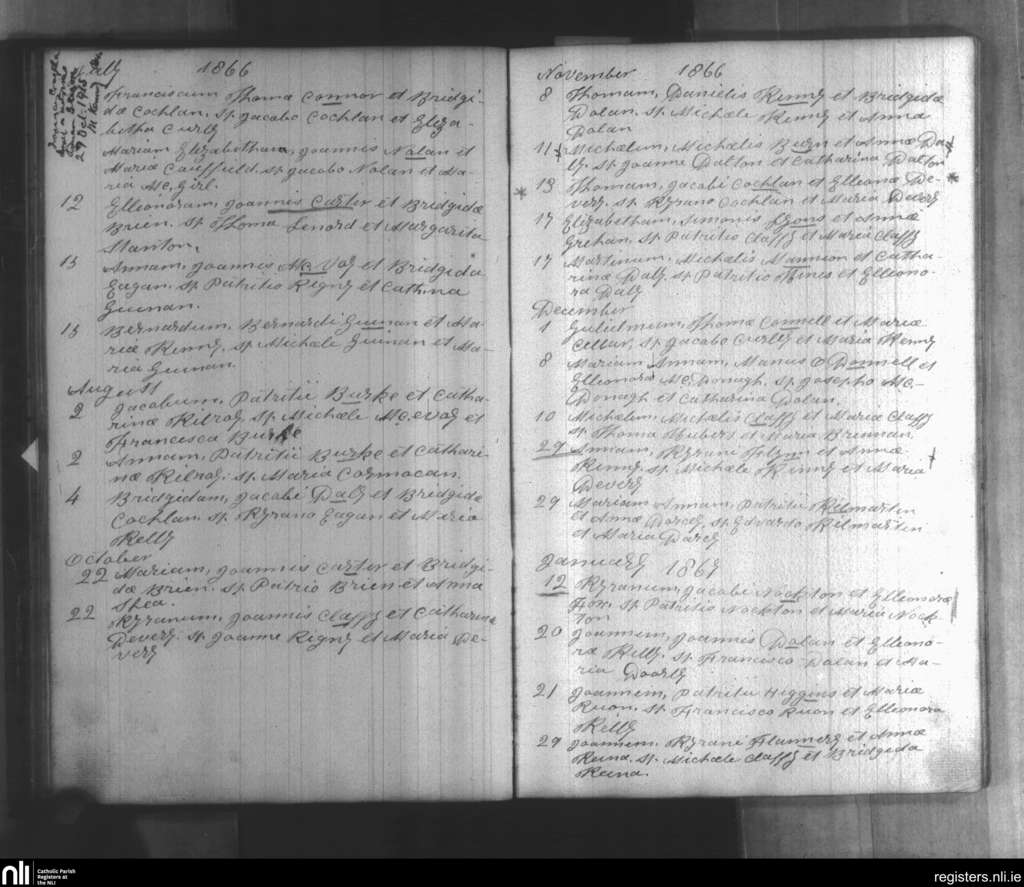 July 1866
29 Oct. 1915
Franciscum Thomæ Connor et Bridgi-
dæ Cochlan, Sp. Jacobo Cochlan et Eliza-
betha Curly
Mariam Elizabetham, Joannis Nolan et
Mariæ Cauffield. Sp. Jacobo Nolan et Ma-
ria Mc Girl.
12 Elleonoram, Joannis Carter et Bridgidæ
Brien. Sp Thoma Lenord et Margarita
Stanton.
15 Annam, Joannis Mc Voy et Bridgida
Eagan. Sp. Patritio Rigny et Cathrina
Guinan.
15 Bernardum, Bernardi Guinan et Ma-
riæ Kenny, Sp Michæle Guinan et Ma-
ria Guinan.
August
2 Jacobum, Patritii Burke et Catha-
rinæ Kilroy, Sp Michæle Mc. evoy et
Francisca Burke
2 Annam, Patritii Burke et Cathari-
næ Kilroy. Sp. Maria Cormacan.
4 Bridgidam, Jacobi Daly et Bridgida
Cochlan. Sp. Kyrano Eagan et Maria
Kelly
October
22 Mariam, Joannis Carter et Bridgi-
dæ Brien. Sp. Patrio Brien et Anna
Shea.
22 Kyranum, Joannis Claffy et Catharinæ
Devery. Sp. Joanne Rigny et Maria De-
very
November 1866
8 Thomam, Danielis Kenny et Bridgidæ
Dolan. Sp. Michæle Kenny et Anna
Dolan
11 Michælem, Michælis Bugn et Annæ Da-
ly. Sp Joanne Dalton et Catharina Dalton
13 Thomam, Jacobi Cochlan et Elleonæ De-
very. Sp. Kyrano Cochlan et Maria Devery
17 Elizabetham, Simonis Lyons et Annæ
Grehan. Sp. Patritio Claffy et Maria Claffy
17 Martinum, Michælis Mannion et Catha-
rinæ Daly. Sp Patritio Hines et Elleono-
ra Daly
December
1 Gulielmum, Thomæ Connell et Mariæ
Cellan, Sp. Jacobo Curly et Maria Kenny
8 Mariam Annam, Manus O Donnell et
Elleonora Mc. Donagh. Sp. Josepho Mc-
Donagh et Catharina Dolan.
10 Michælem, Michælis Claffy et Maria Claffy
Sp Thoma Hubert et Maria Brennan
29 Annam, Kyrani Flynn et Annæ
Kenny. Sp. Michæle Kenny et Maria
Devery
29 Mariam Annam, Patritii Kilmartin
et Annæ Darcy, Sp. Edvardo Kilmartin
et Maria Darcy
January 1867
12 Kyranum, Jacobi Nockton et Elleonoræ
Fox. Sp. Patritio Nockton et Maria Nock-
ton
20 Joannem, Joannis Dolan et Elleono-
ræ Kelly. Sp. Francisco Dolan et Ma-
ria Doorly
21 Joannem, Patritii Higgins et Mariæ
Ruon. Sp. Francisco Ruon et Elleonora
Kelly
29 Joannem. Kyrani Flannery et Annæ
Reina. Sp. Michæle Claffy et Bridgida
Reina.
nli Catholic Parish
Registers at
the NLI
registers.nli.ie